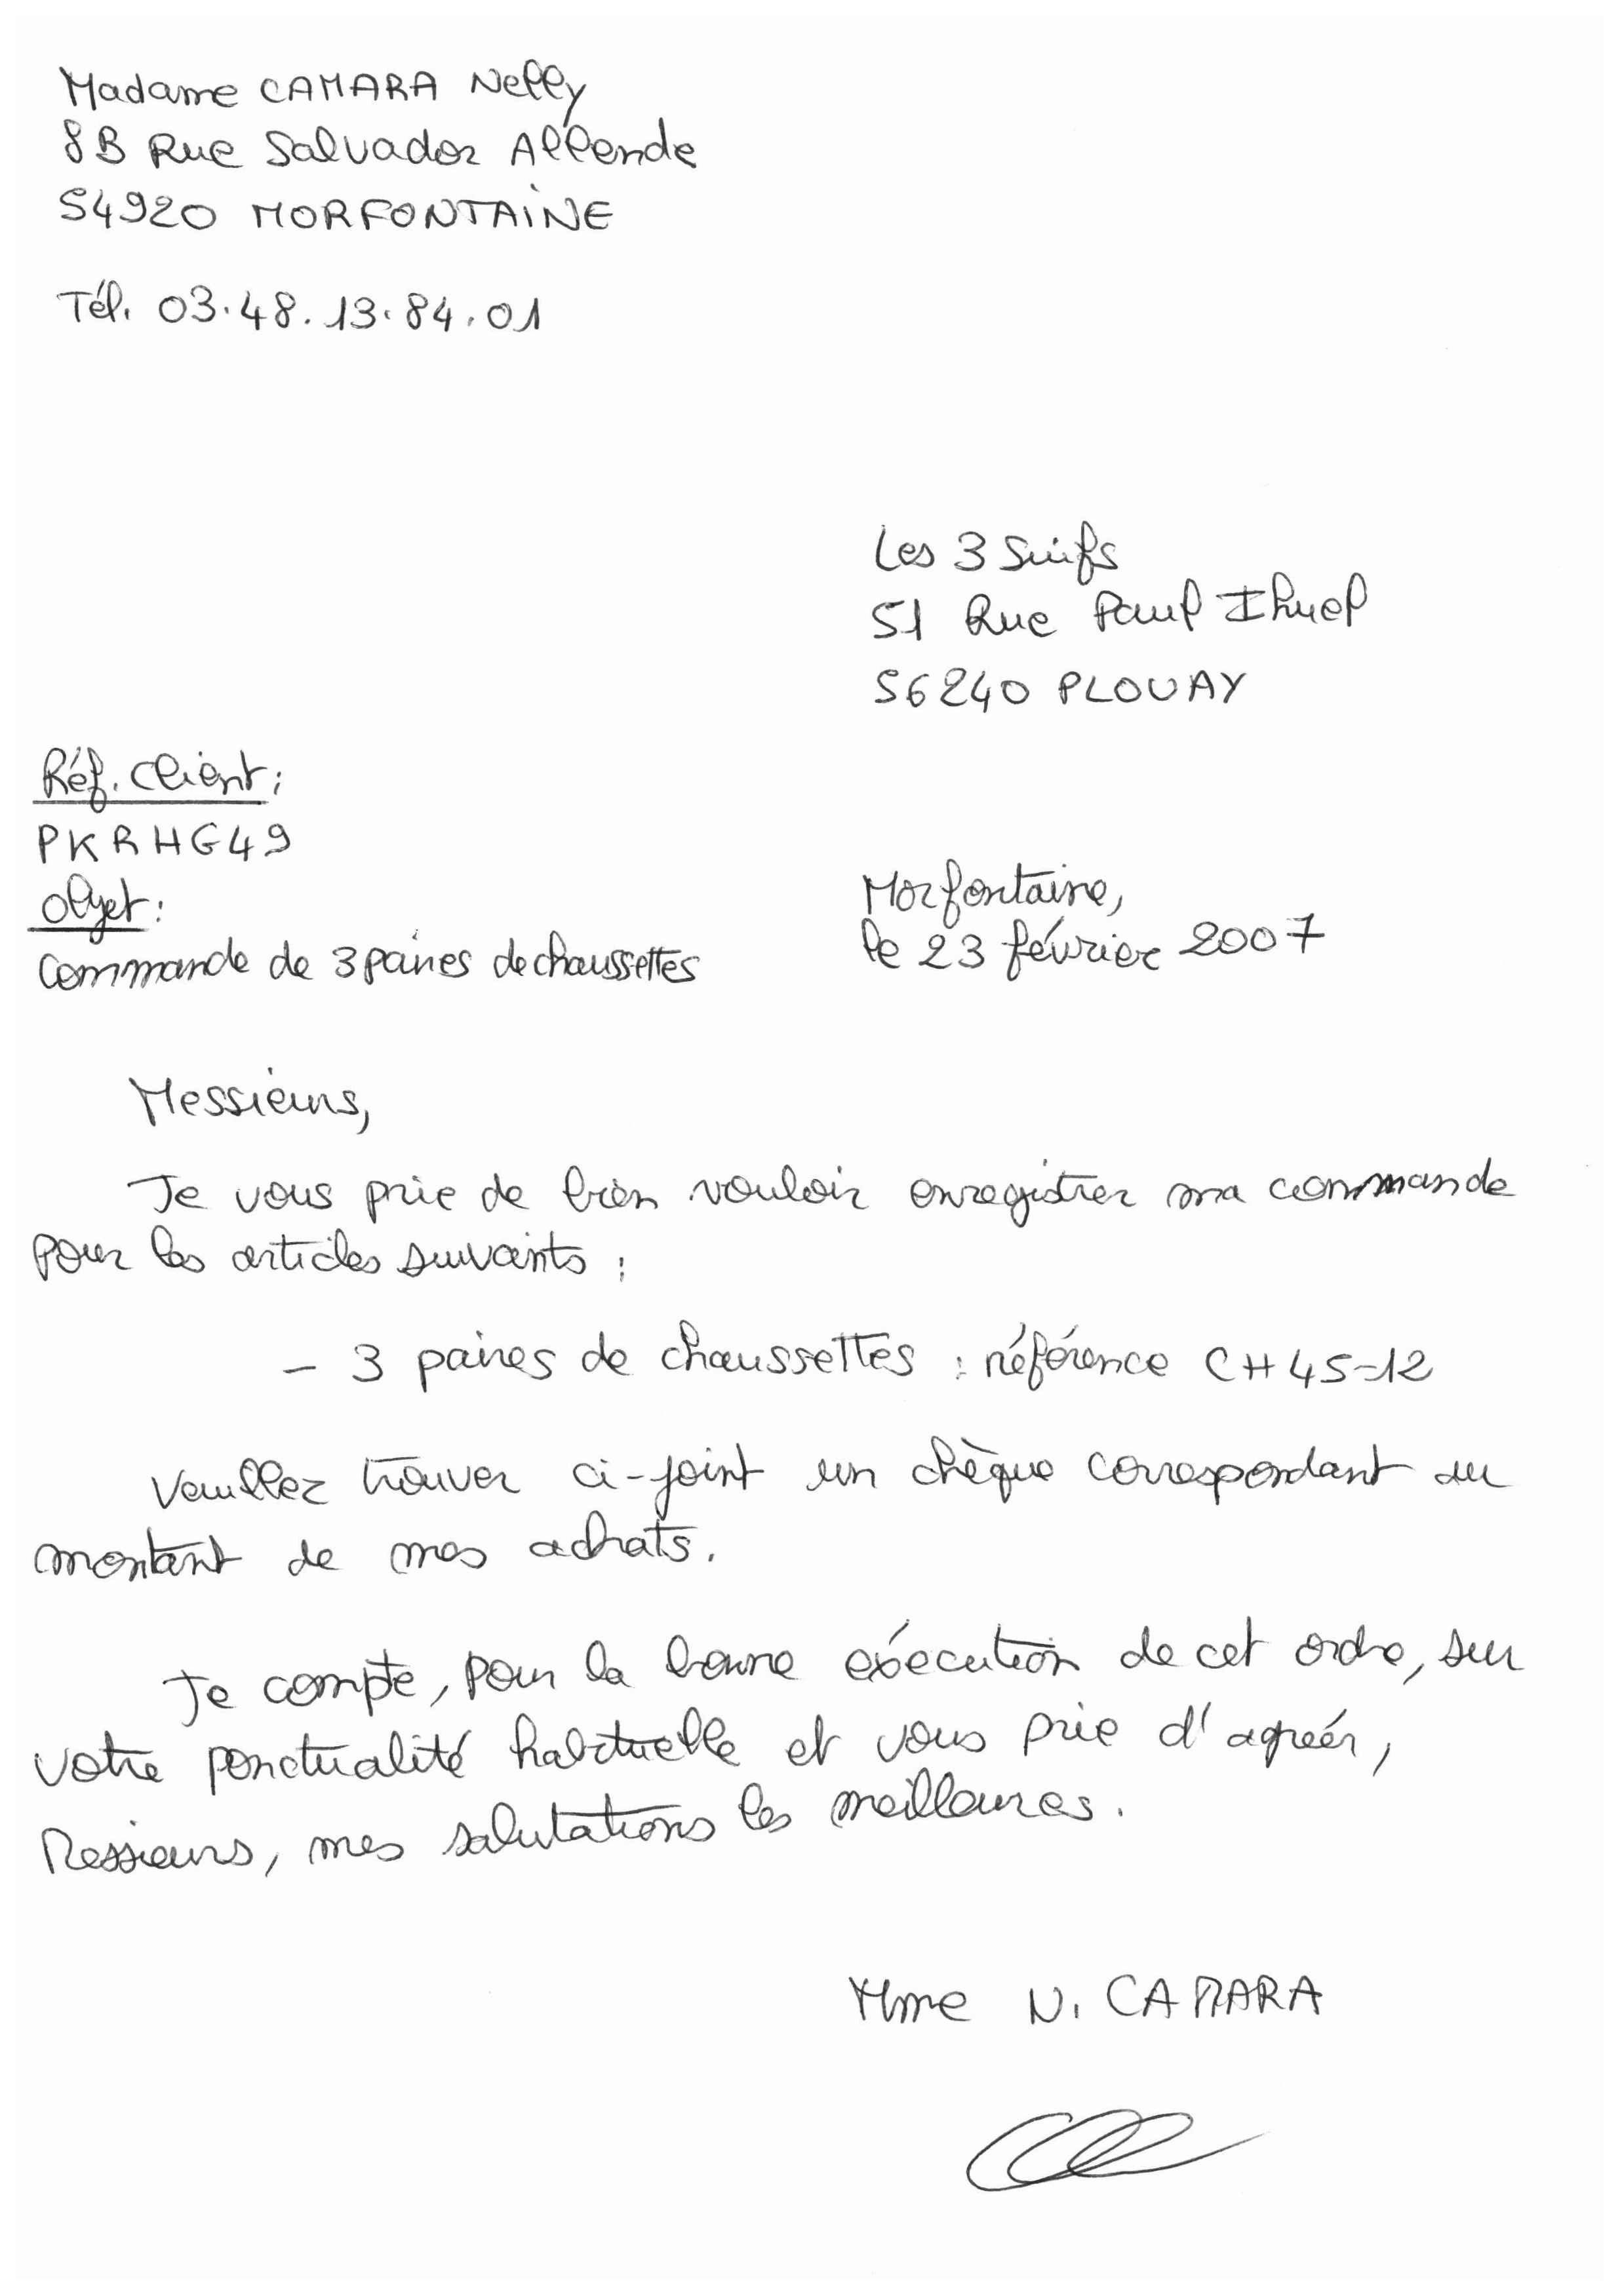 Madame CAMARA Nelly
8B Rue Salvador Allende
54920 MORFONTAINE
Tél. 03.48.13.84.01
Les 3 Suifs
51 Rue Paul Ihuel
56240 PLOUAY
Réf. Client :
PKRHG49
Objet :
Commande de 3 paires de chaussettes
Morfontaine,
le 23 février 2007
Messieurs,
Je vous prie de bien vouloir enregistrer ma commande
pour les articles suivants :
- 3 paires de chaussettes : référence CH45-12
Veuillez trouver ci-joint un chèque correspondant au
montant de mes achats.
Je compte, pour la bonne exécution de cet ordre, sur
votre ponctualité habituelle et vous prie d'agréer,
Messieurs, mes salutations les meilleures.
Mme N. CAMARA